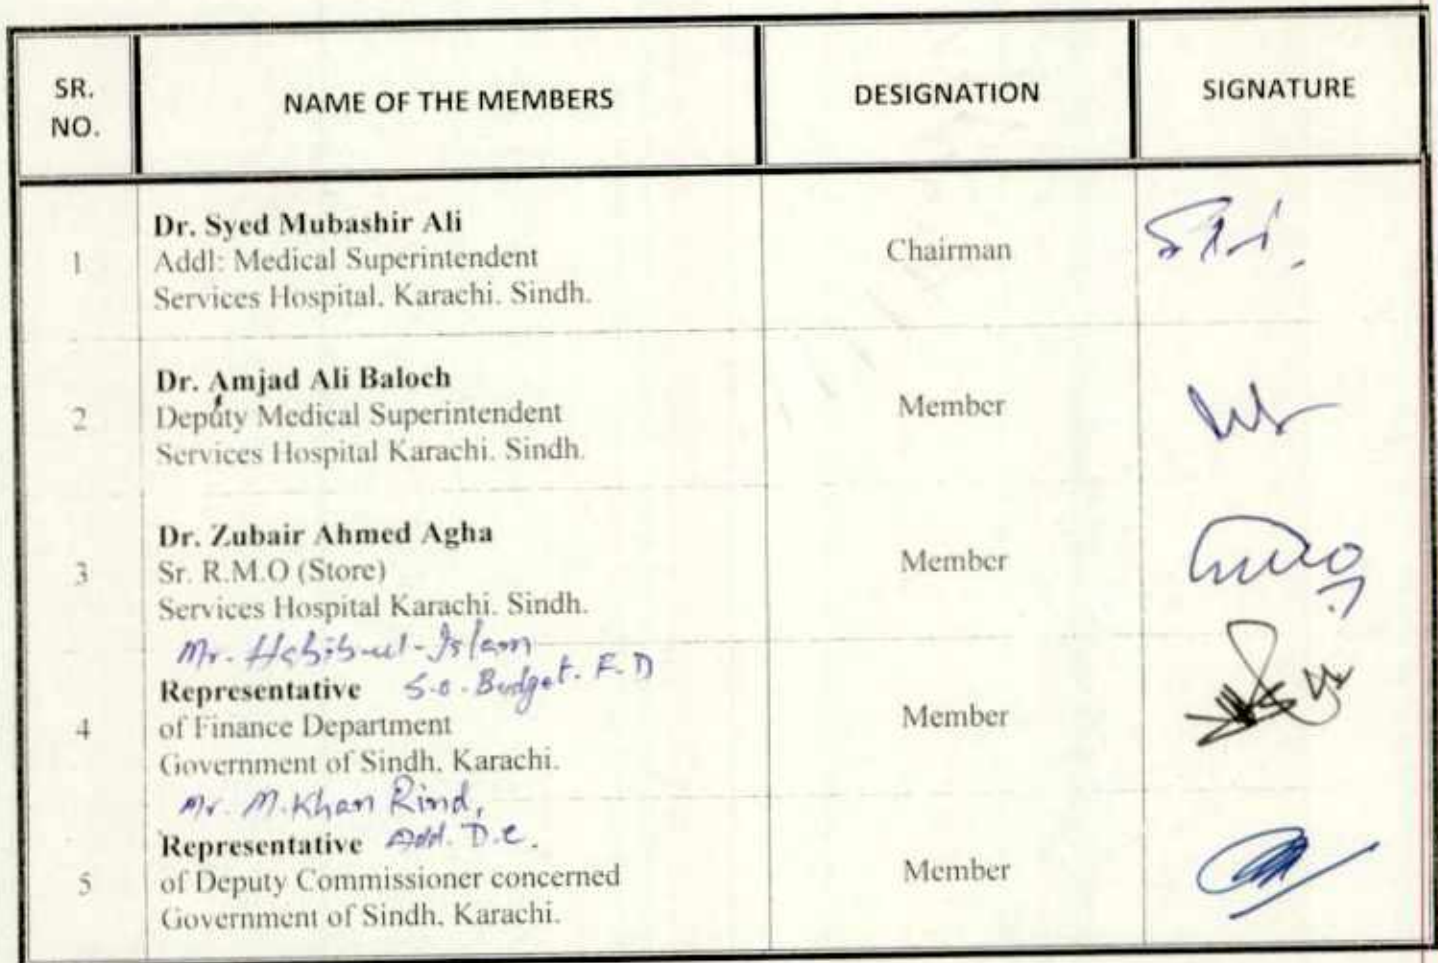 SR. NO.
NAME OF THE MEMBERS
DESIGNATION
SIGNATURE
1
Dr. Syed Mubashir Ali
Addl: Medical Superintendent
Services Hospital, Karachi. Sindh.
Chairman
2
Dr. Amjad Ali Baloch
Deputy Medical Superintendent
Services Hospital Karachi. Sindh.
Member
3
Dr. Zubair Ahmed Agha
Sr. R.M.O (Store)
Services Hospital Karachi. Sindh.
Member
4
Mr. Habib-ul-Islam
Representative S.O. Budget. F.D
of Finance Department
Government of Sindh, Karachi.
Member
5
Mr. M. Khan Rind,
Representative Add. D.C.
of Deputy Commissioner concerned
Government of Sindh, Karachi.
Member